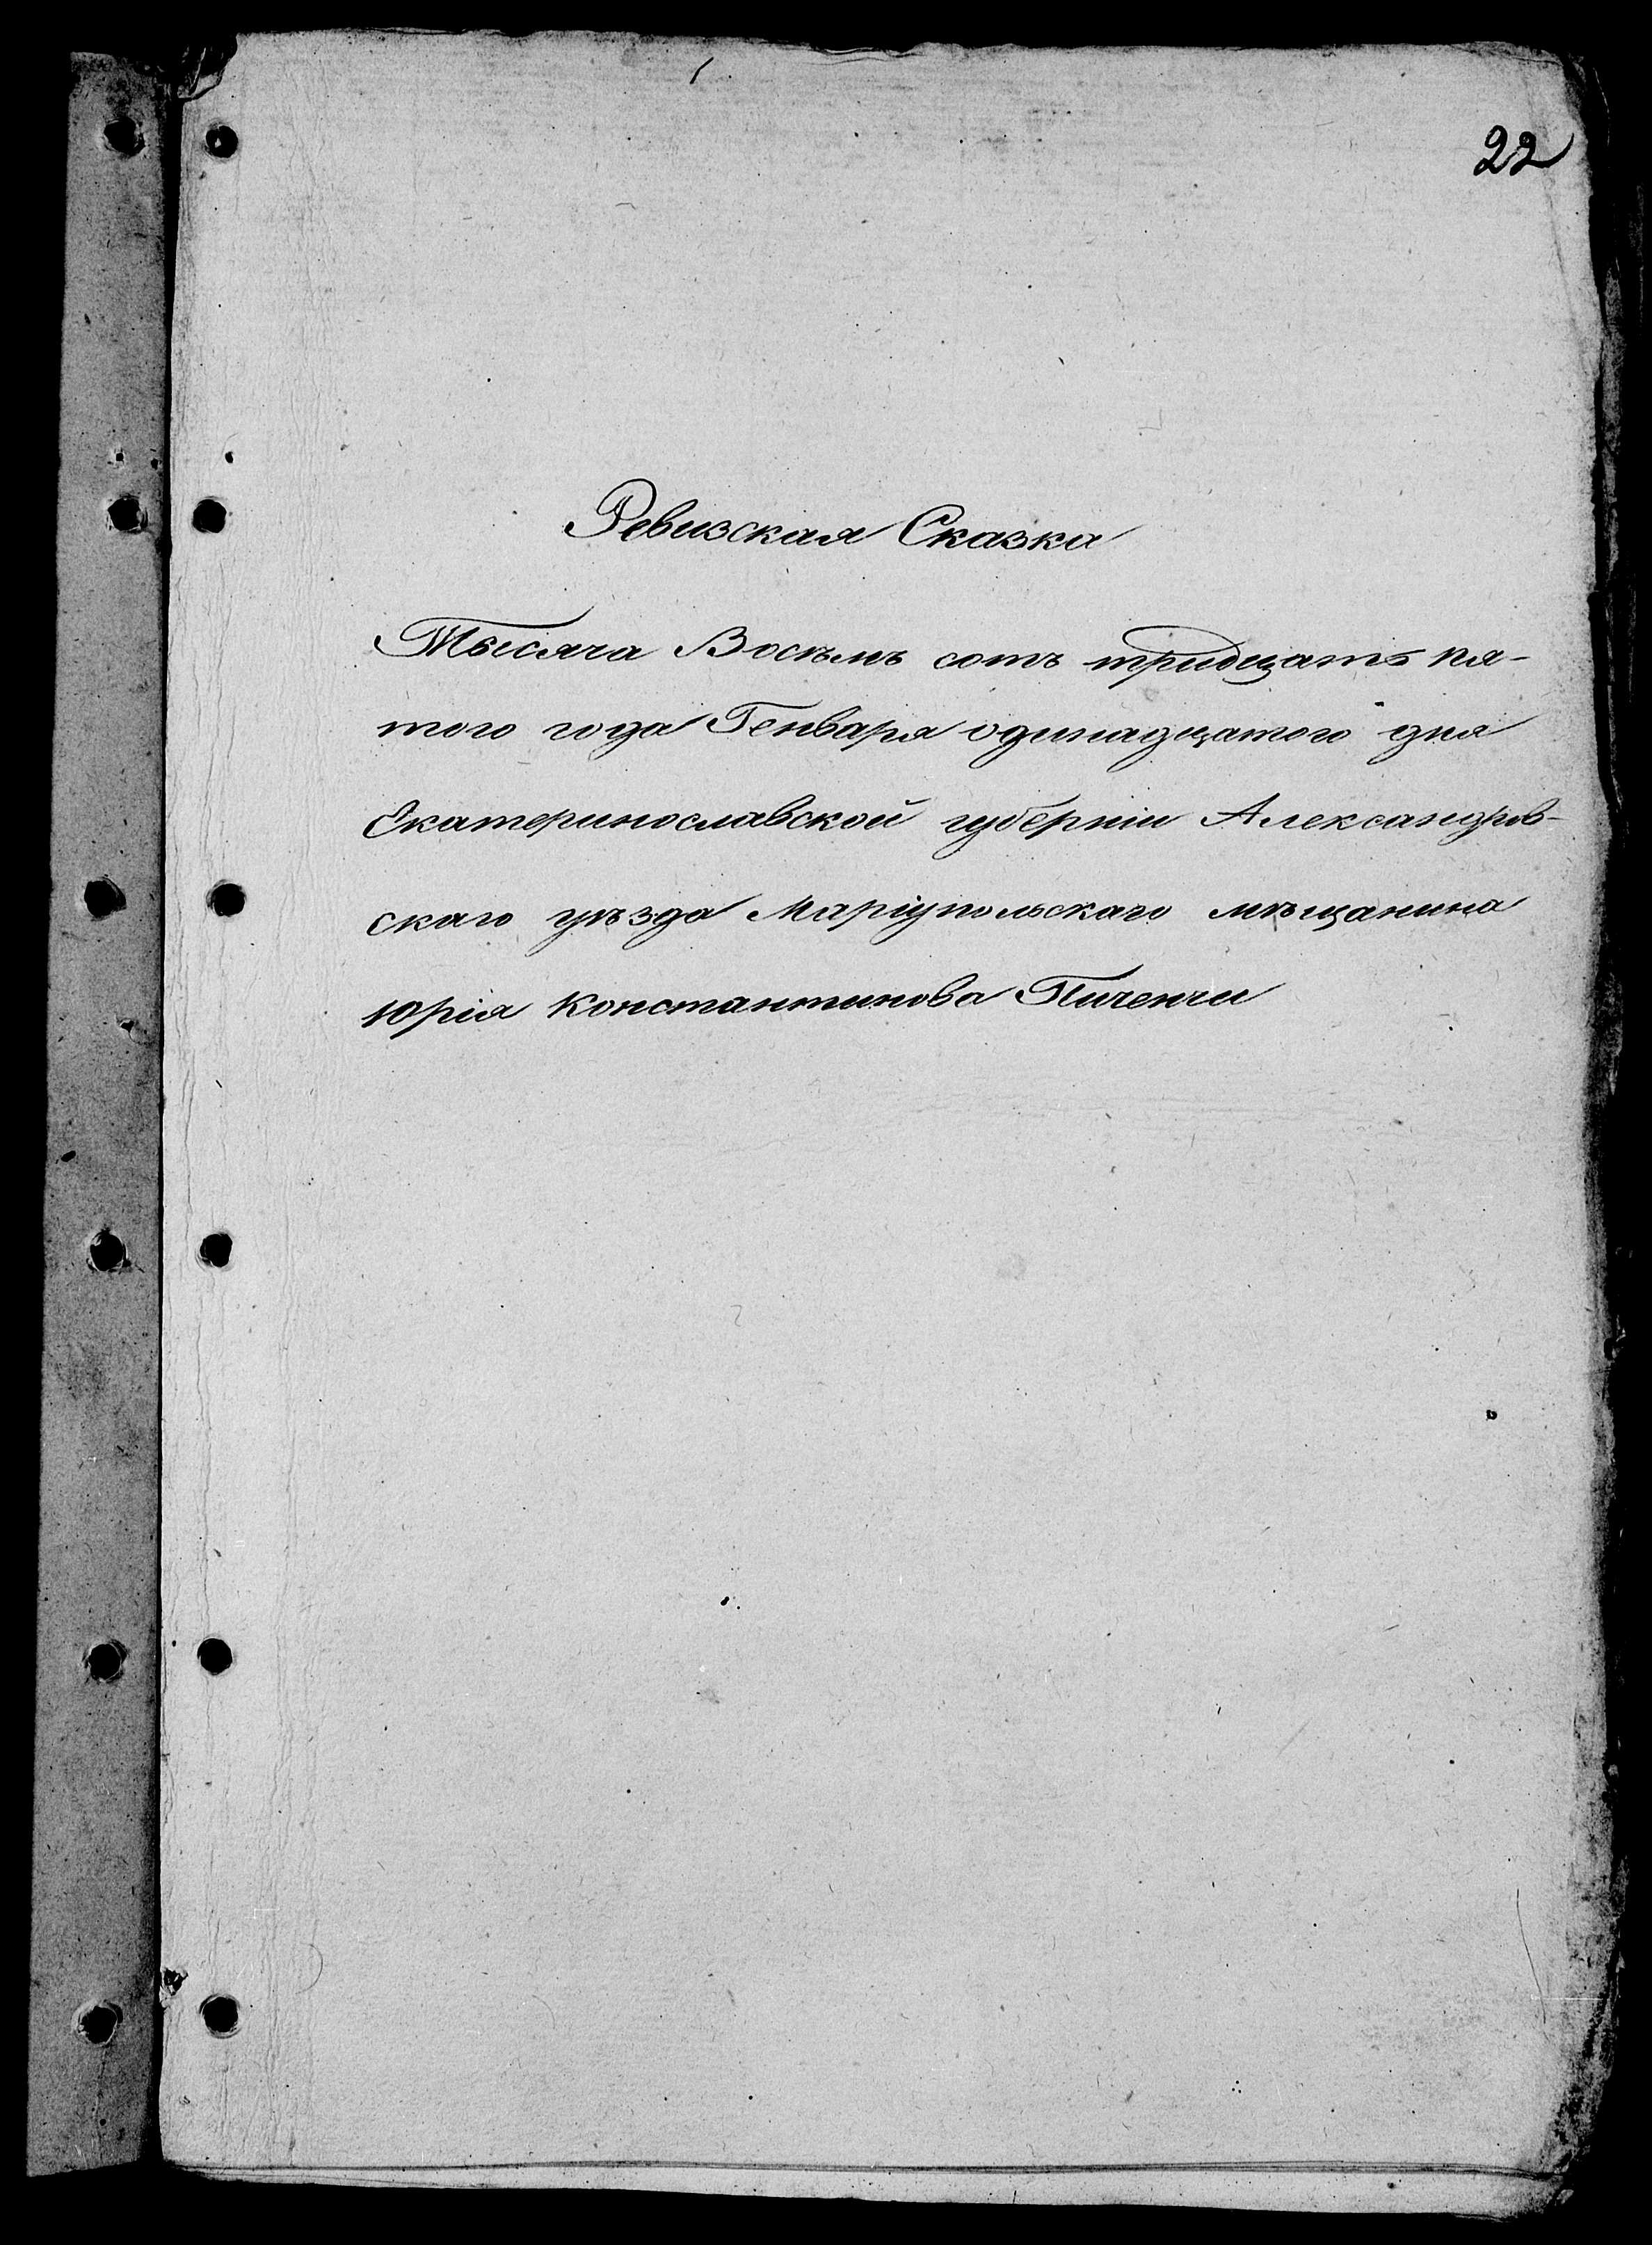 22
Ревизская Сказка
Тысяча Восѣмъ сотъ тридцать пя-
того года Генваря одинадцатого дня
Екатеринославской губерніи Александров-
скаго уѣзда Маріупольскаго мѣщанина
Юрія Константинова Пиченчи